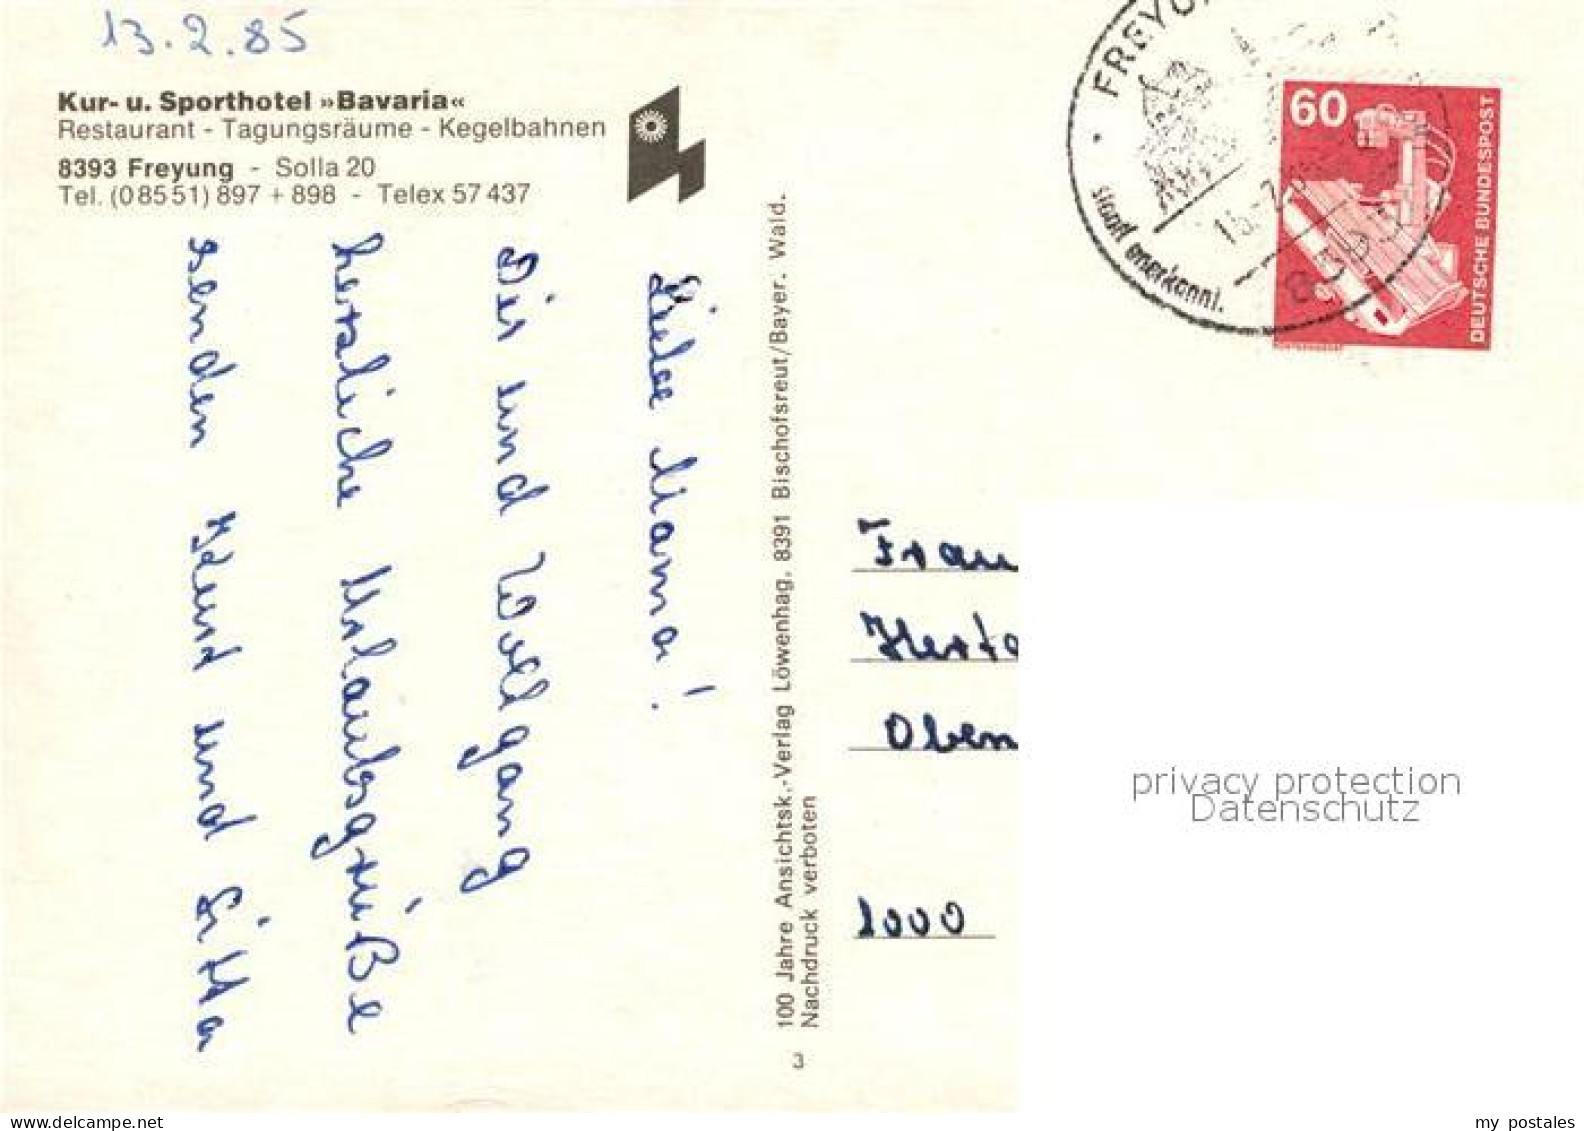 13.2.85
Kur- u. Sporthotel »Bavaria«
Restaurant - Tagungsräume - Kegelbahnen
8393 Freyung - Solla 20
Tel. (0 85 51) 897 + 898 - Telex 57 437
Liebe Mama!
Dir und Wolfgang
herzliche Urlaubsgrüße
senden Kurt und Gitta
100 Jahre Ansichtsk.-Verlag Löwenhag, 8391 Bischofsreut/Bayer. Wald.
Nachdruck verboten
3
FREYU
staatl anerkannt.
60
DEUTSCHE BUNDESPOST
Frau
Herta
Oben
1000
privacy protection
Datenschutz
my postales